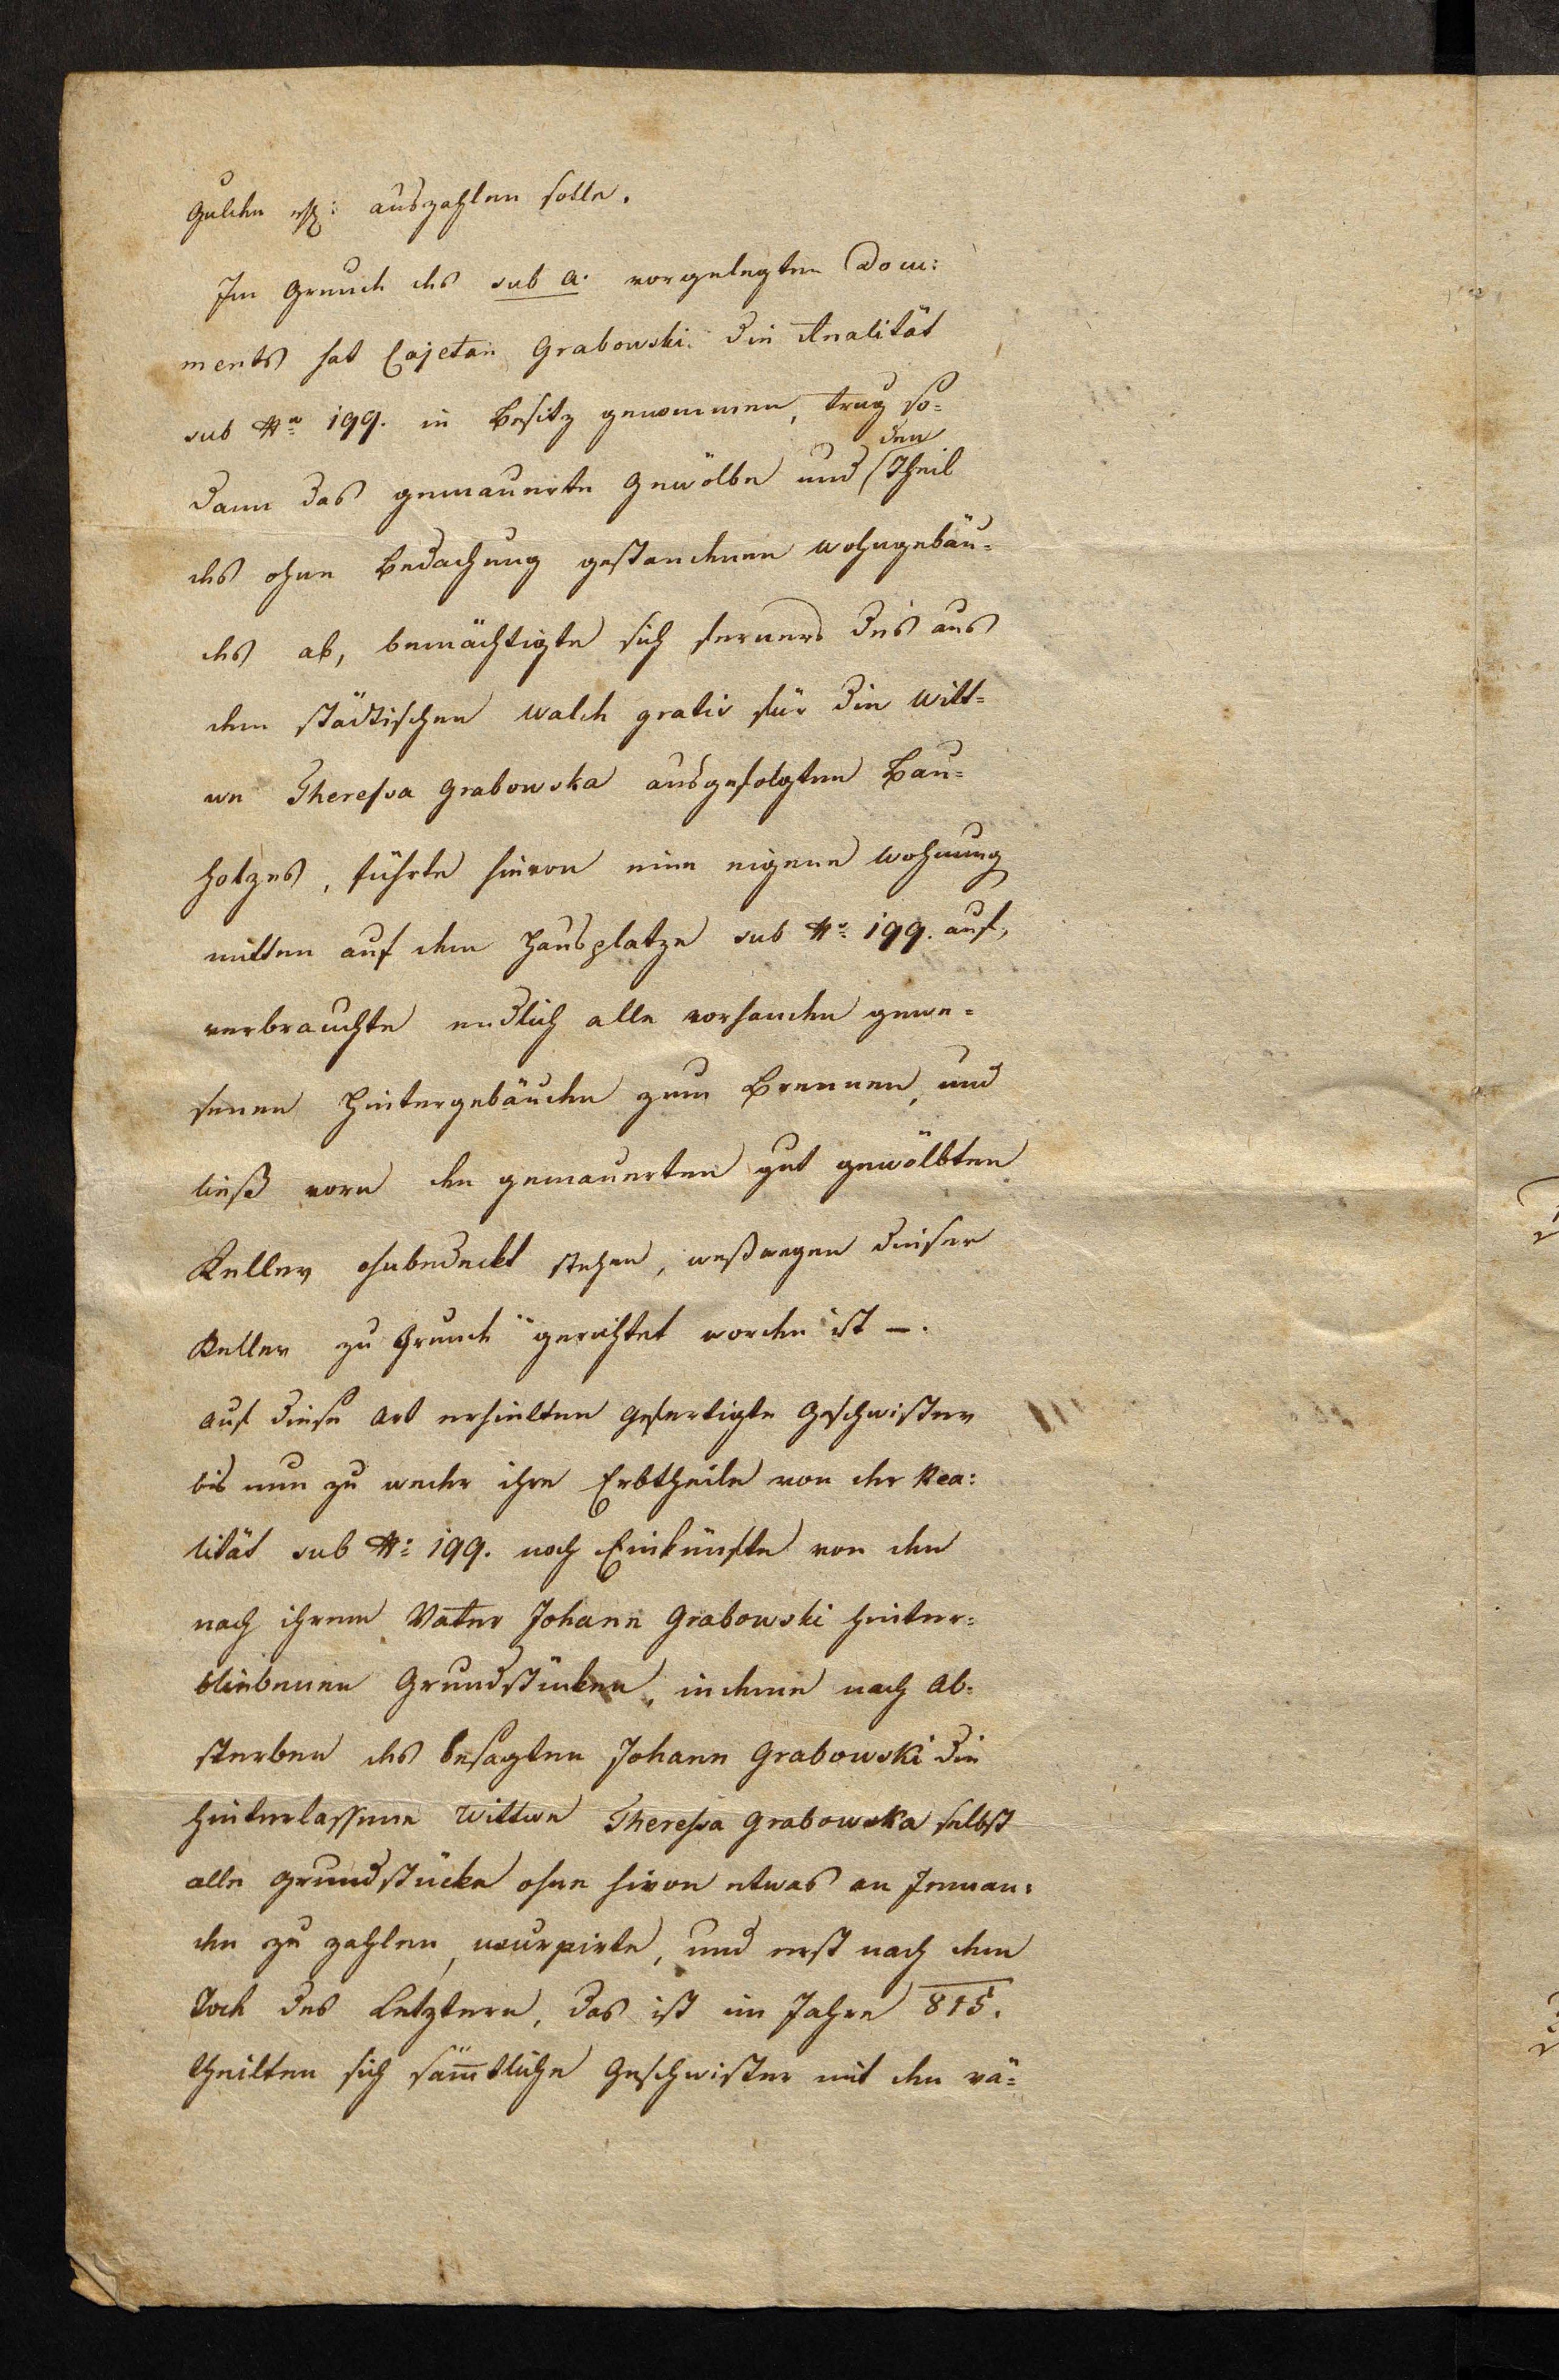 Gulden rh: auszahlen solle.
Im Grunde des sub a. vorgelegten Dom:
ments hat Cajetan Grabowski die Realität
sub No 199. in Besitz genommen, trug so=
dann das gemauerte Gewölbe und den Theil
des ohne Bedachung gestandenen Wohngebäu=
des ab, bemächtigte sich ferners des aus
dem städtischen Walde gratis für die Witt=
we Theressa Grabowska ausgefolgten Bau=
holzes, führte hievon eine eigene Wohnung
mitten auf dem Hausplatze sub No 199. auf,
verbrauchte endlich alle vorhanden gewe=
senen Hintergebäuden zum Brennen, und
ließ vorn den gemauerten gut gewölbten
Keller ohnbedeckt stehen, weßwegen dieser
Keller zu Grunde gerichtet worden ist —.
Auf diese Art erhielten Gefertigte Geschwister
bis nun zu weder ihre Erbtheile von der Rea:
lität sub No: 199. noch Einkünfte von den
nach ihrem Vater Johann Grabowski hinter=
bliebenen Grundstücken, indeme nach Ab=
sterben des besagten Johann Grabowski die
hinterlassene Wittwe Theressa Grabowska selbst
alle Grundstücke ohne hievon etwas an Jeman:
den zu zahlen, usurpirte, und erst nach dem
Tode des Letztern, das ist im Jahre 815.
theilten sich sämtliche Geschwister mit den vä=